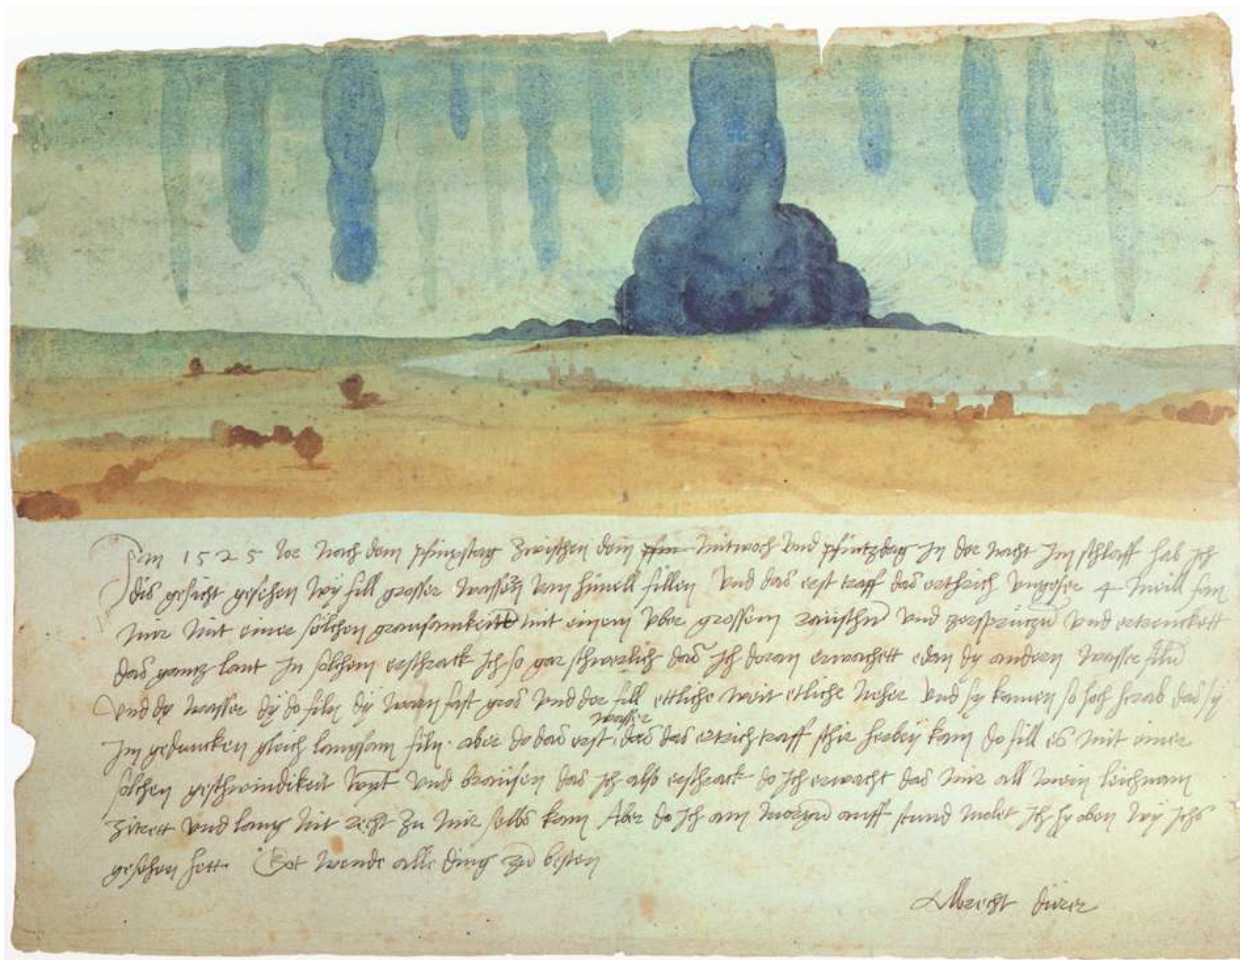 Im 1525 Jor nach dem pfinxstag zwischen dem pfin mitwoch und pfintzdag in der nacht im schlaff hab ich
dis gesicht gesehen wy fill grosser wassern vom himell fillen und das erst traff das erthrich ungefer 4 meill fan
mir mit einer solchen grausamkeitt mit einem uber grossem raüschn und zersprützn und ertrenckett
das gantz lant In solchem erschrack ich so gar schwerlich das ich doran erwachett edan dy andern wasser filn
und dy wasser dy do filn dy warn fast gros und der fill ettliche weit etliche neher und sy kamen so hoch herab das sy
im gedancken gleich langsam filn. aber do das erst wasser das das ertrich traff schir herbey kam do fill es mit einer
solchen geschwindikeit wynt und braüsen das ich also erschrack do ich erwacht das mir all mein leichnam
zitrett und lang nit recht zu mir selbs kam Aber do ich am morgn auff stund molet ich hy oben wy ichs
gesehen hett. Got wende alle ding zu besten
Albrecht dürer